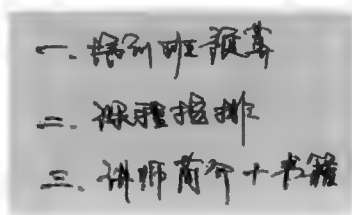 一.培训班报幕
二.课程指排
三.讲师简介+书籍